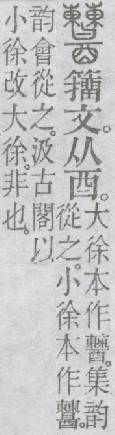 籒文。从酉。
大徐本作。集韵
從之。小徐本作。
韵會從之。汲古閣以
小徐改大徐。非也。